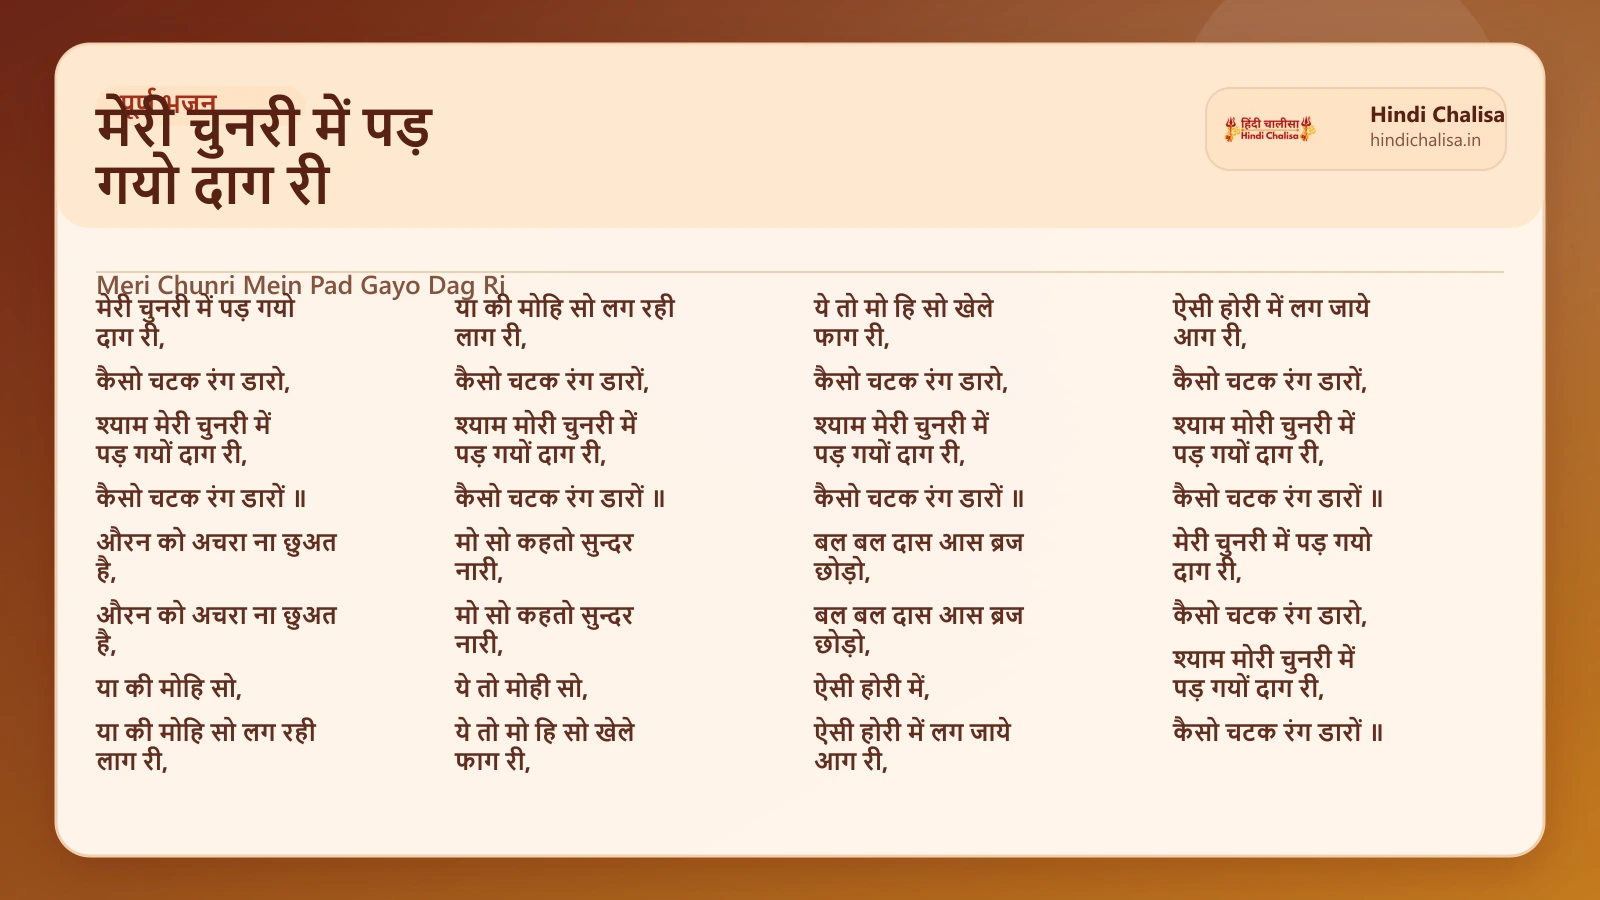 पूर्ण भजन
मेरी चुनरी में पड़
गयो दाग री
हिंदी चालीसा
Hindi Chalisa
Hindi Chalisa
hindichalisa.in
Meri Chunri Mein Pad Gayo Dag Ri
मेरी चुनरी में पड़ गयो
दाग री,
कैसो चटक रंग डारो,
श्याम मेरी चुनरी में
पड़ गयों दाग री,
कैसो चटक रंग डारों ॥
औरन को अचरा ना छुअत
है,
औरन को अचरा ना छुअत
है,
या की मोहि सो,
या की मोहि सो लग रही
लाग री,
या की मोहि सो लग रही
लाग री,
कैसो चटक रंग डारों,
श्याम मोरी चुनरी में
पड़ गयों दाग री,
कैसो चटक रंग डारों ॥
मो सो कहतो सुन्दर
नारी,
मो सो कहतो सुन्दर
नारी,
ये तो मोही सो,
ये तो मो हि सो खेले
फाग री,
ये तो मो हि सो खेले
फाग री,
कैसो चटक रंग डारो,
श्याम मेरी चुनरी में
पड़ गयों दाग री,
कैसो चटक रंग डारों ॥
बल बल दास आस ब्रज
छोड़ो,
बल बल दास आस ब्रज
छोड़ो,
ऐसी होरी में,
ऐसी होरी में लग जाये
आग री,
ऐसी होरी में लग जाये
आग री,
कैसो चटक रंग डारों,
श्याम मोरी चुनरी में
पड़ गयों दाग री,
कैसो चटक रंग डारों ॥
मेरी चुनरी में पड़ गयो
दाग री,
कैसो चटक रंग डारो,
श्याम मोरी चुनरी में
पड़ गयों दाग री,
कैसो चटक रंग डारों ॥